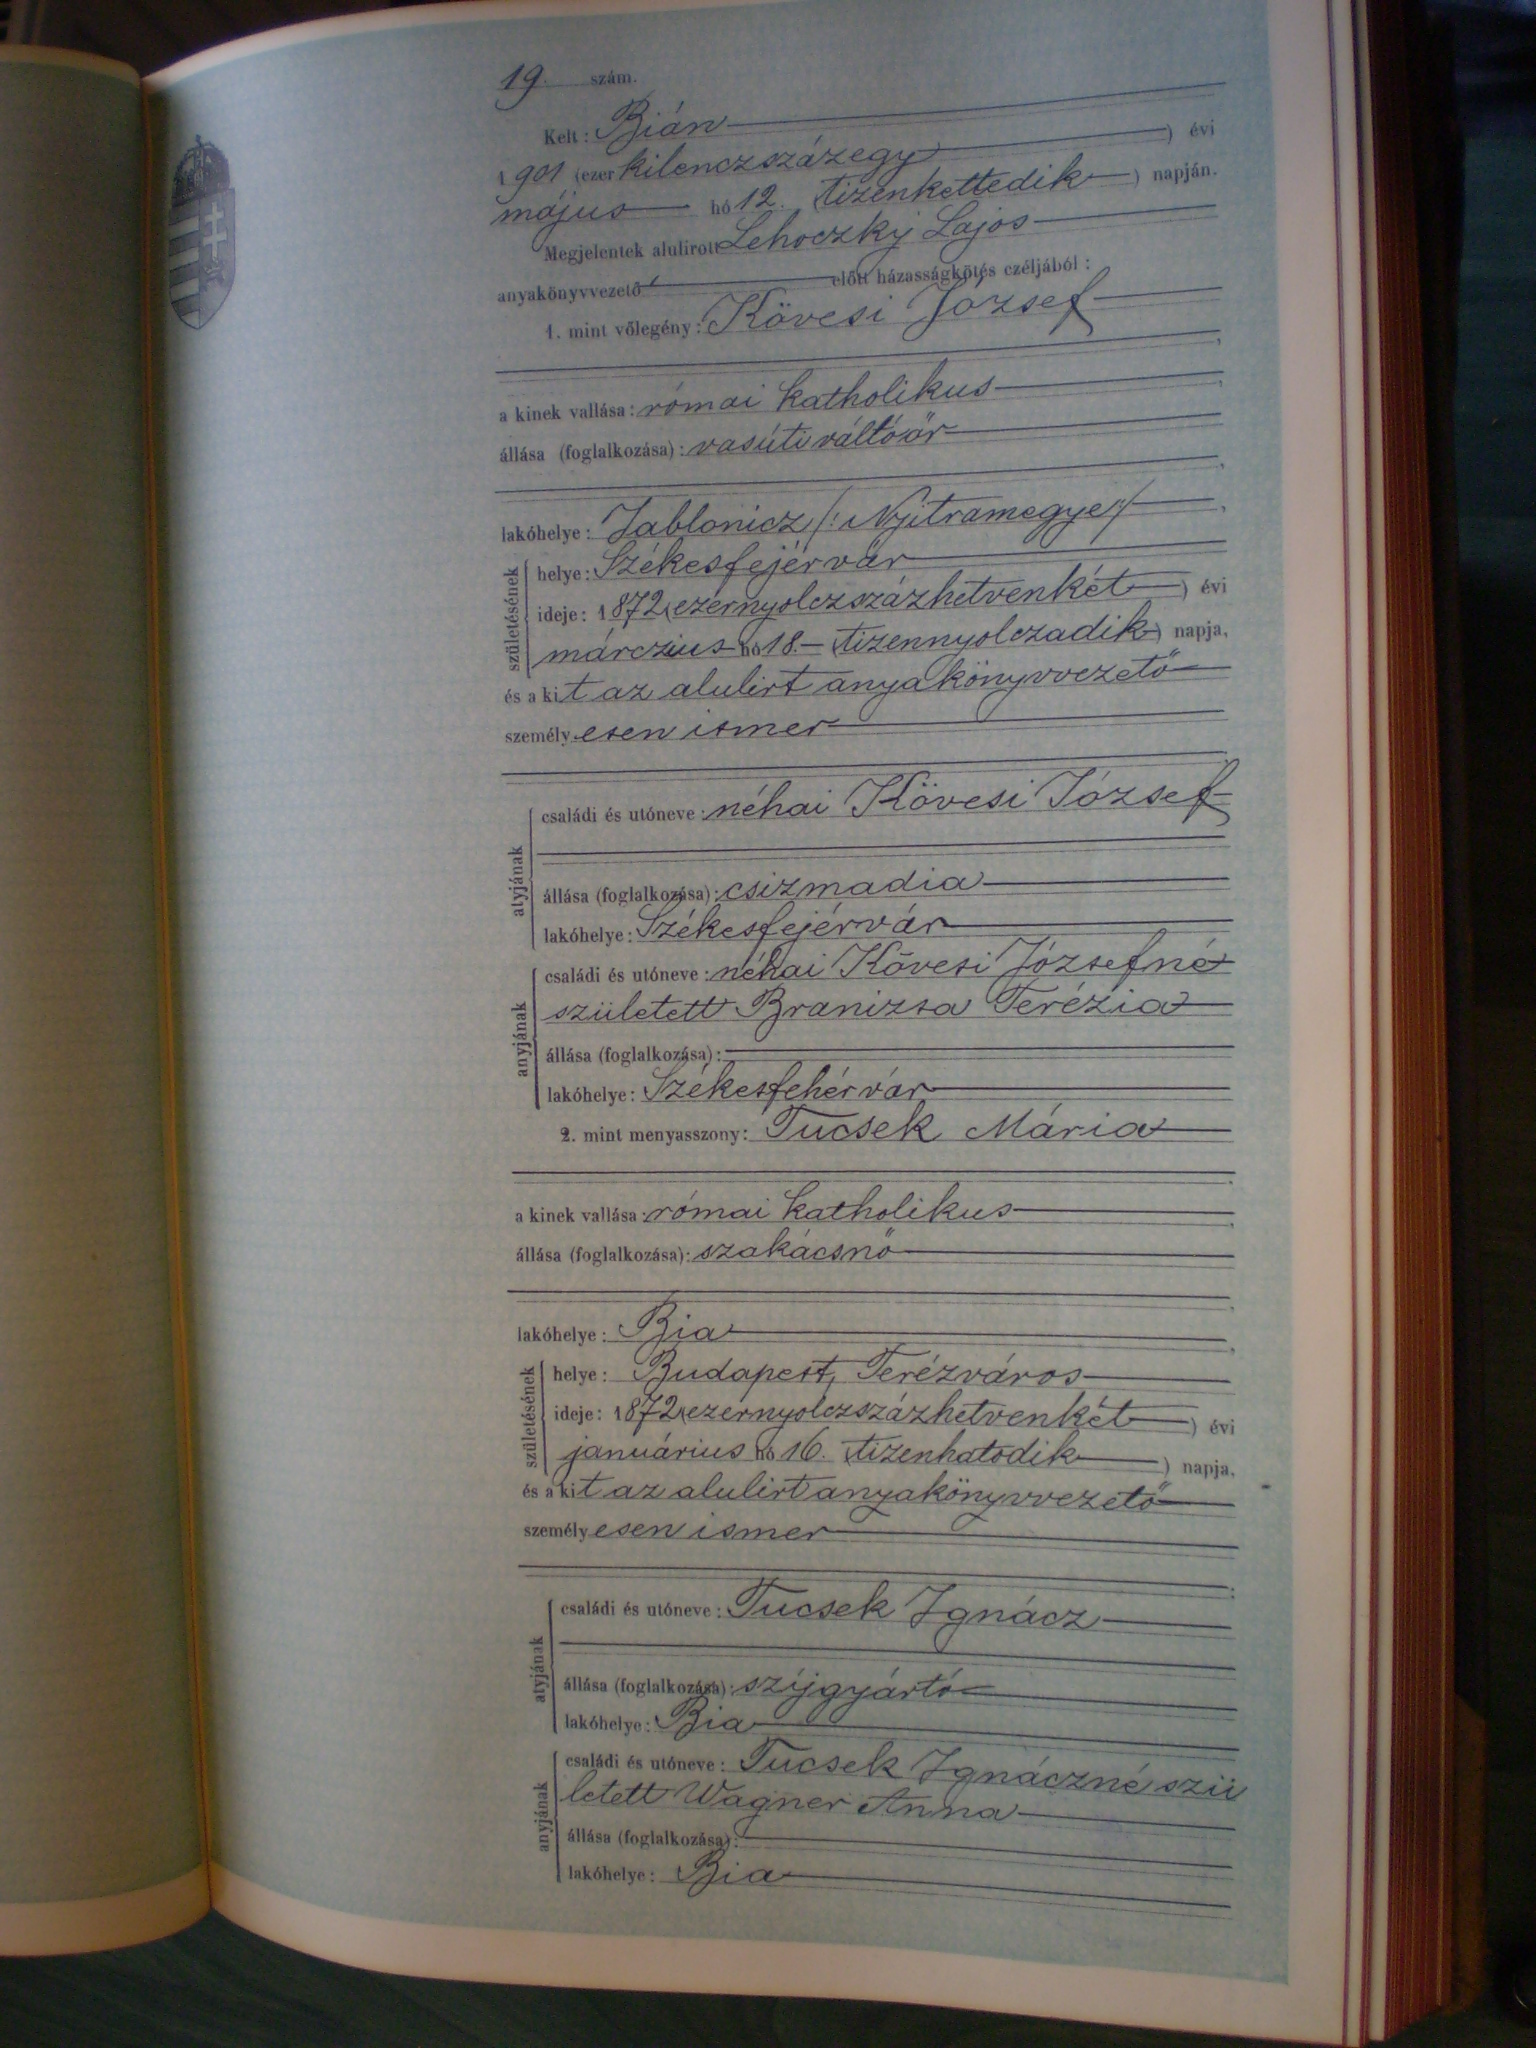 19. szám.
Kelt: Bián
1901 (ezer kilenczszázegy) évi
május hó 12. (tizenkettedik) napján.
Megjelentek alulirott Lehoczky Lajos
anyakönyvvezető előtt házasságkötés czéljából:
1. mint vőlegény: Kövesi József
a kinek vallása: római katholikus,
állása (foglalkozása): vasúti váltóőr,
lakóhelye: Jablonicz /: Nyitramegye :/,
születésének
helye: Székesfejérvár
ideje: 1872 (ezernyolczszázhetvenkét) évi
márczius hó 18. (tizennyolczadik) napja,
és a kit az alulirt anyakönyvvezető
személyesen ismer
atyjának
családi és utóneve: néhai Kövesi József
állása (foglalkozása): csizmadia
lakóhelye: Székesfejérvár
anyjának
családi és utóneve: néhai Kövesi Józsefné
született Branizsa Terézia
állása (foglalkozása):
lakóhelye: Székesfehérvár
2. mint menyasszony: Tucsek Mária
a kinek vallása: római katholikus,
állása (foglalkozása): szakácsnő,
lakóhelye: Bia,
születésének
helye: Budapest, Terézváros
ideje: 1872 (ezernyolczszázhetvenkét) évi
január­ius hó 16. (tizenhatodik) napja,
és a kit az alulirt anyakönyvvezető
személyesen ismer
atyjának
családi és utóneve: Tucsek Ignácz
állása (foglalkozása): szíjgyártó
lakóhelye: Bia
anyjának
családi és utóneve: Tucsek Ignáczné szü
letett Wagner Anna
állása (foglalkozása):
lakóhelye: Bia